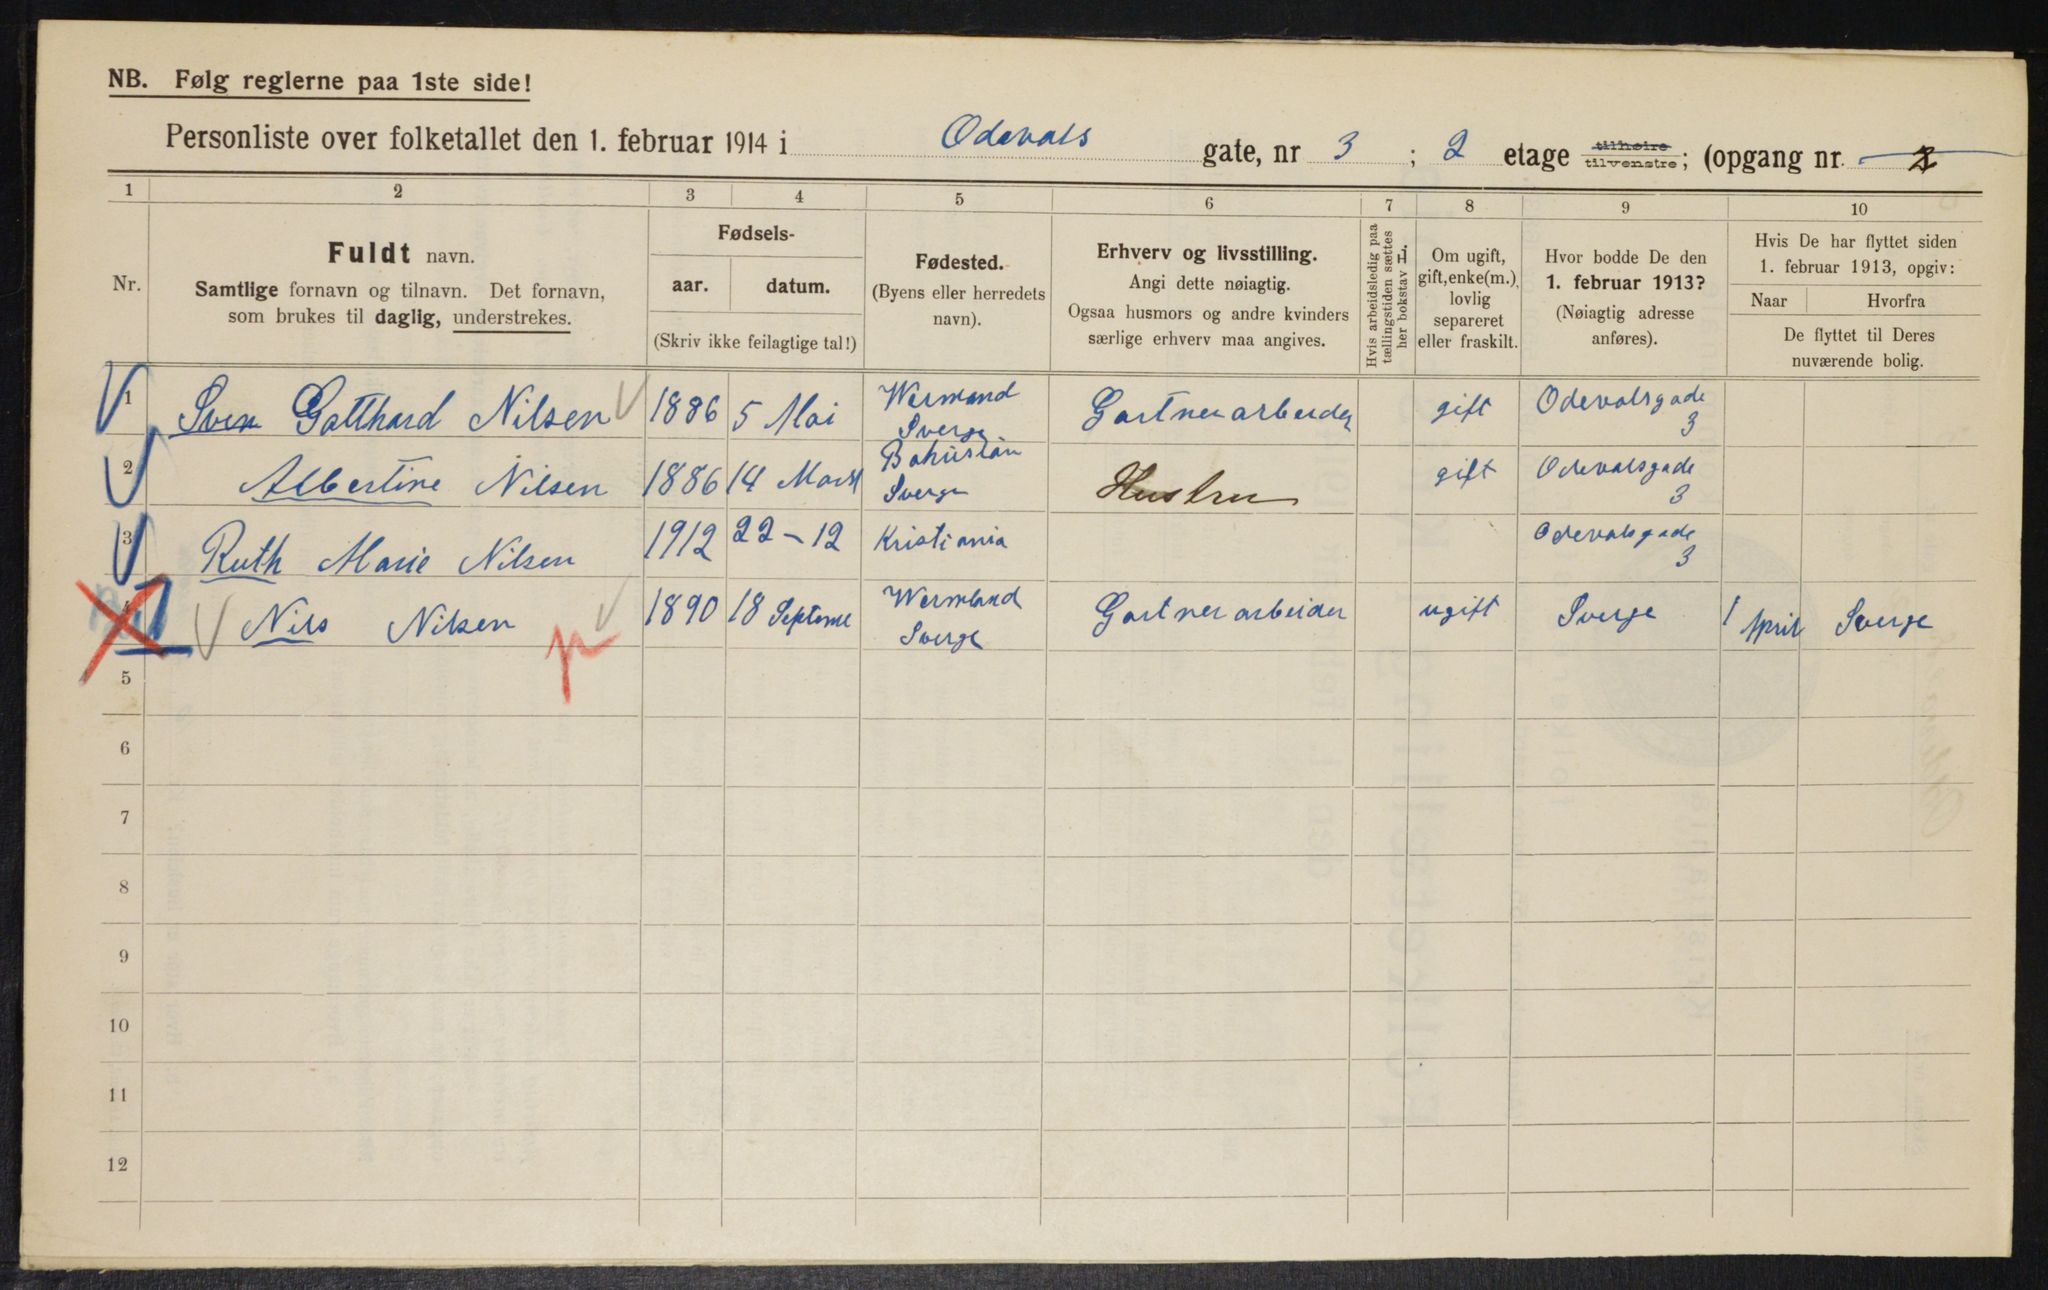 NB. Følg reglerne paa 1ste side!
Personliste over folketallet den 1. februar 1914 i Odevals gate, nr 3 ; 2 etage tilhøire tilvenstre; (opgang nr.
1 2 3 4 5 6 7 8 9 10
Nr.
Fuldt navn.
Samtlige fornavn og tilnavn. Det fornavn,
som brukes til daglig, understrekes.
Fødsels-
aar. datum.
(Skriv ikke feilagtige tal!)
Fødested.
(Byens eller herredets
navn).
Erhverv og livsstilling.
Angi dette nøiagtig.
Ogsaa husmors og andre kvinders
særlige erhverv maa angives.
Hvis arbeidsledig paa
tællingstiden sættes
her bokstav L.
Om ugift,
gift, enke(m.),
lovlig
separeret
eller fraskilt.
Hvor bodde De den
1. februar 1913?
(Nøiagtig adresse
anføres).
Hvis De har flyttet siden
1. februar 1913, opgiv:
Naar Hvorfra
De flyttet til Deres
nuværende bolig.
1 Sven Gotthard Nilsen 1886 5 Mai Wermand Sverge Gartnerarbeider gift Odevalsgade 3
2 Albertine Nilsen 1886 14 Marst Bohuslän Sverge Hustru gift Odevalsgade 3
3 Ruth Marie Nilsen 1912 22-12 Kristiania Odevalsgade 3
4 Nils Nilsen 1890 18 Septeme Wermland Sverge Gartnerarbeider ugift Sverge 1 April Sverge
5
6
7
8
9
10
11
12